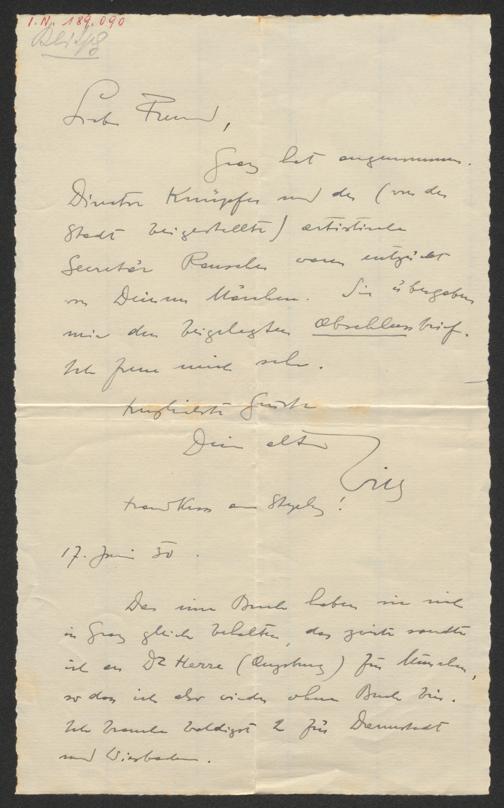 I.N. 189.090
Lieber Freund,
Graz hat angenommen.
Direktor Knüpfer und der (von der
Stadt beigestellte) artistische
Secretär Rauscher waren entzückt
von Deinem Märchen. Sie übergaben
mir den beigelegten Abschlussbrief.
Ich freue mich sehr.
Herzlichste Grüße
Dein alter
Handkuss an
17. Juni 30.
Das eine Buch haben sie sich
in Graz gleich behalten, das zweite sandte
ich an Dr Herre (Augsburg) für München,
so dass ich also wieder ohne Buch bin.
Ich brauche baldigst 2 für Darmstadt
und Wiesbaden.